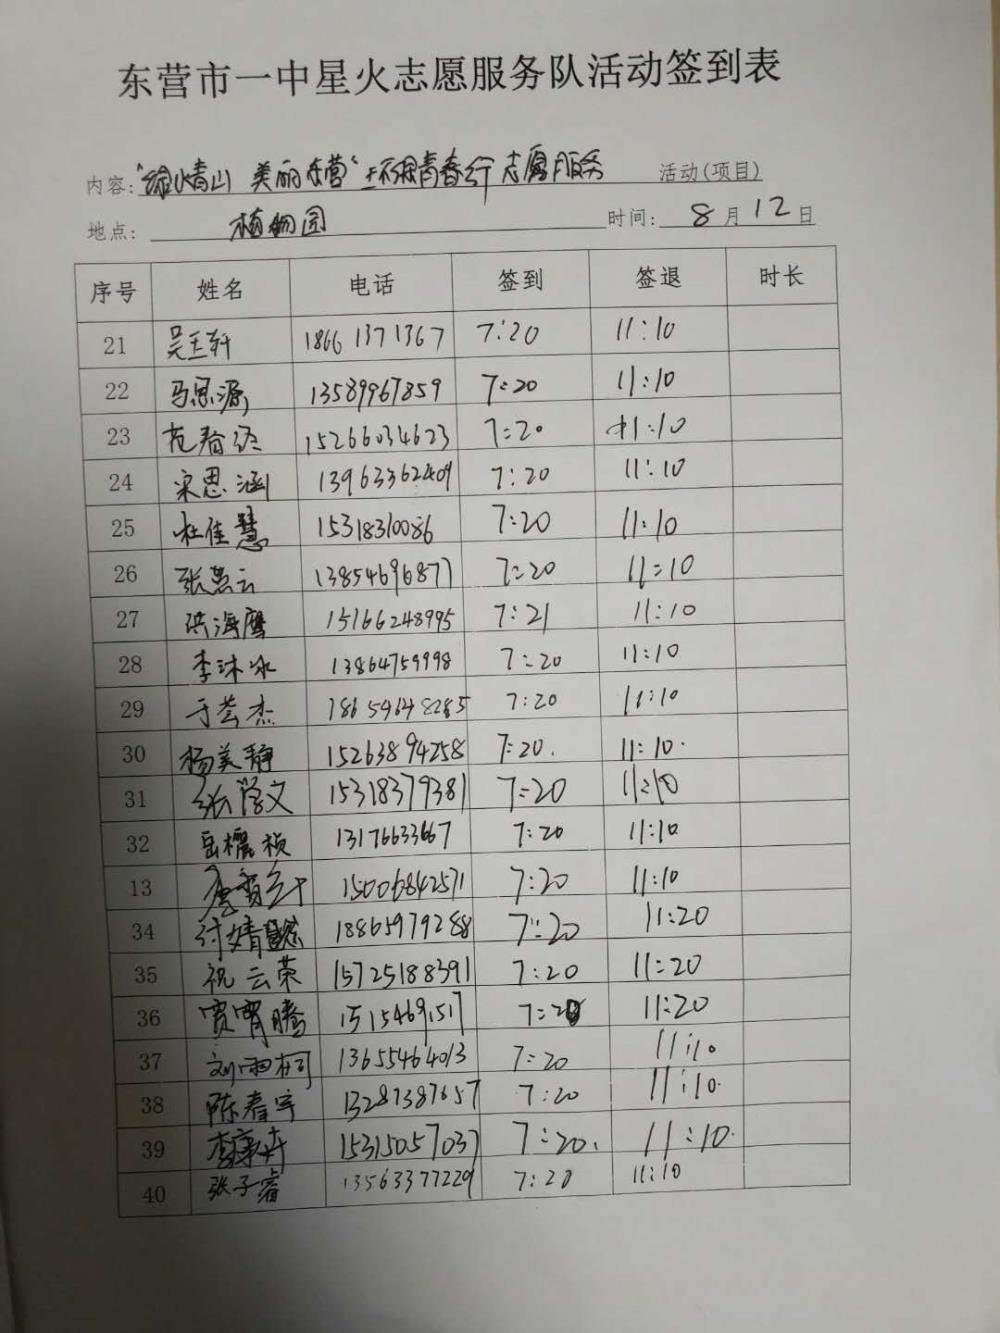 东营市一中星火志愿服务队活动签到表
内容: "绿水青山 美丽东营" 环保青春行 志愿服务 活动(项目)
地点: 植物园 时间: 8月12日
序号 姓名 电话 签到 签退 时长
21 吴玉轩 18661371367 7:20 11:10
22 马思源 13589967859 7:20 11:10
23 范春 15266034623 7:20 11:10
24 宋思涵 13963362409 7:20 11:10
25 杜佳慧 15318310086 7:20 11:10
26 张慧云 13854696877 7:20 11:10
27 洪海鹰 15166248995 7:21 11:10
28 李沐冰 13864759998 7:20 11:10
29 于芸杰 18654648285 7:20 11:10
30 杨美静 15263894258 7:20. 11:10.
31 张 文 15318379381 7:20 11:10
32 岳 桢 13176633667 7:20 11:10
13 15006842571 7:20 11:10
34 付婧 18865979288 7:20 11:20
35 祝云荣 15725188391 7:20 11:20
36 贾霄腾 1515469,517 7:20 11:20
37 刘雨桐 13655464013 7:20 11:10
38 陈春宇 13287387657 7:20 11:10
39 李康卉 15315057037 7:20. 11:10.
40 张子睿 13563377229 7:20 11:10